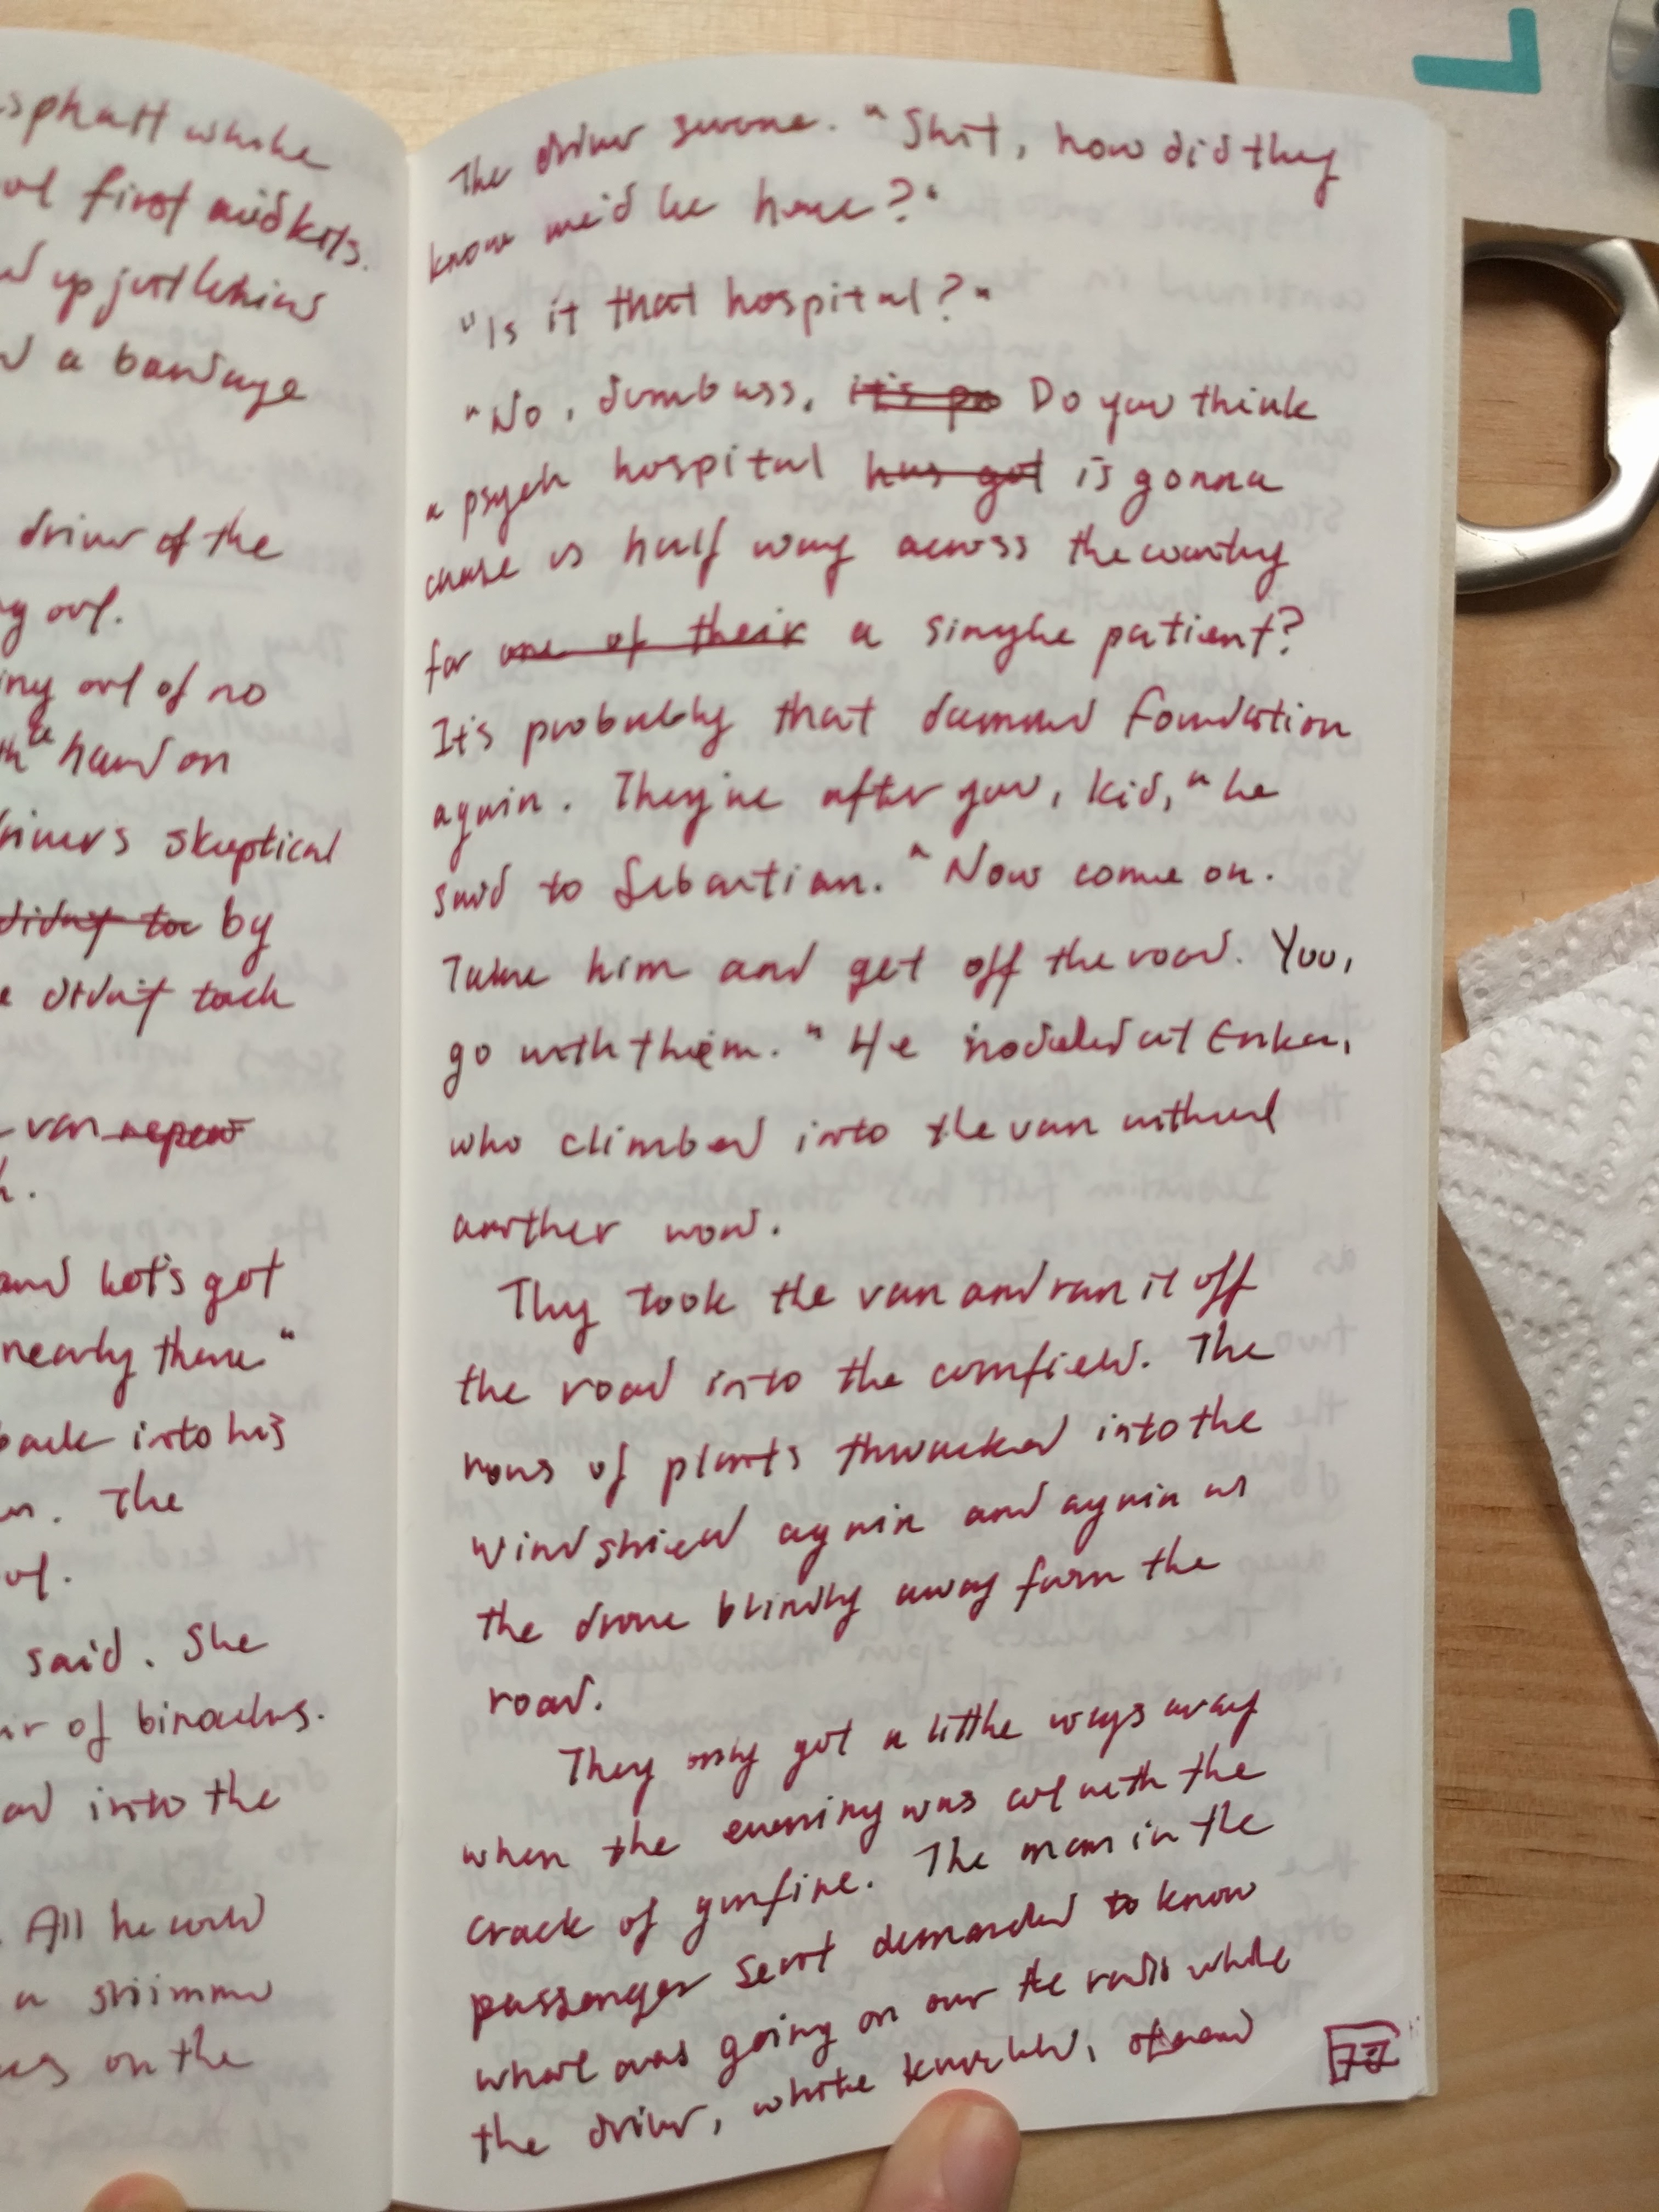 sphalt while
first aid kits.
up just behind
a bandage
driver of the
out.
out of no
hand on
skeptical
didn't by
didn't
van
and let's get
nearly there."
back into his
The
said. She
of binoculars.
into the
All he could
a
on the
The driver swore. "Shit, how did they
know we'd be here?"
"Is it that hospital?"
"No, dumbass, it's Do you think
a psych hospital has got is gonna
chase us half way across the country
for one of their a single patient?
It's probably that damned Foundation
again. They're after you, kid," he
said to Sebastian. "Now come on.
Take him and get off the road. You,
go with them." He nodded at Erika,
who climbed into the van without
another word.
They took the van and ran it off
the road into the cornfield. The
rows of plants thwacked into the
windshield again and again as
the drove blindly away from the
road.
They only got a little ways away
when the evening was cut with the
crack of gunfire. The man in the
passenger seat demanded to know
what was going on over the radio while
the driver, white knuckled,